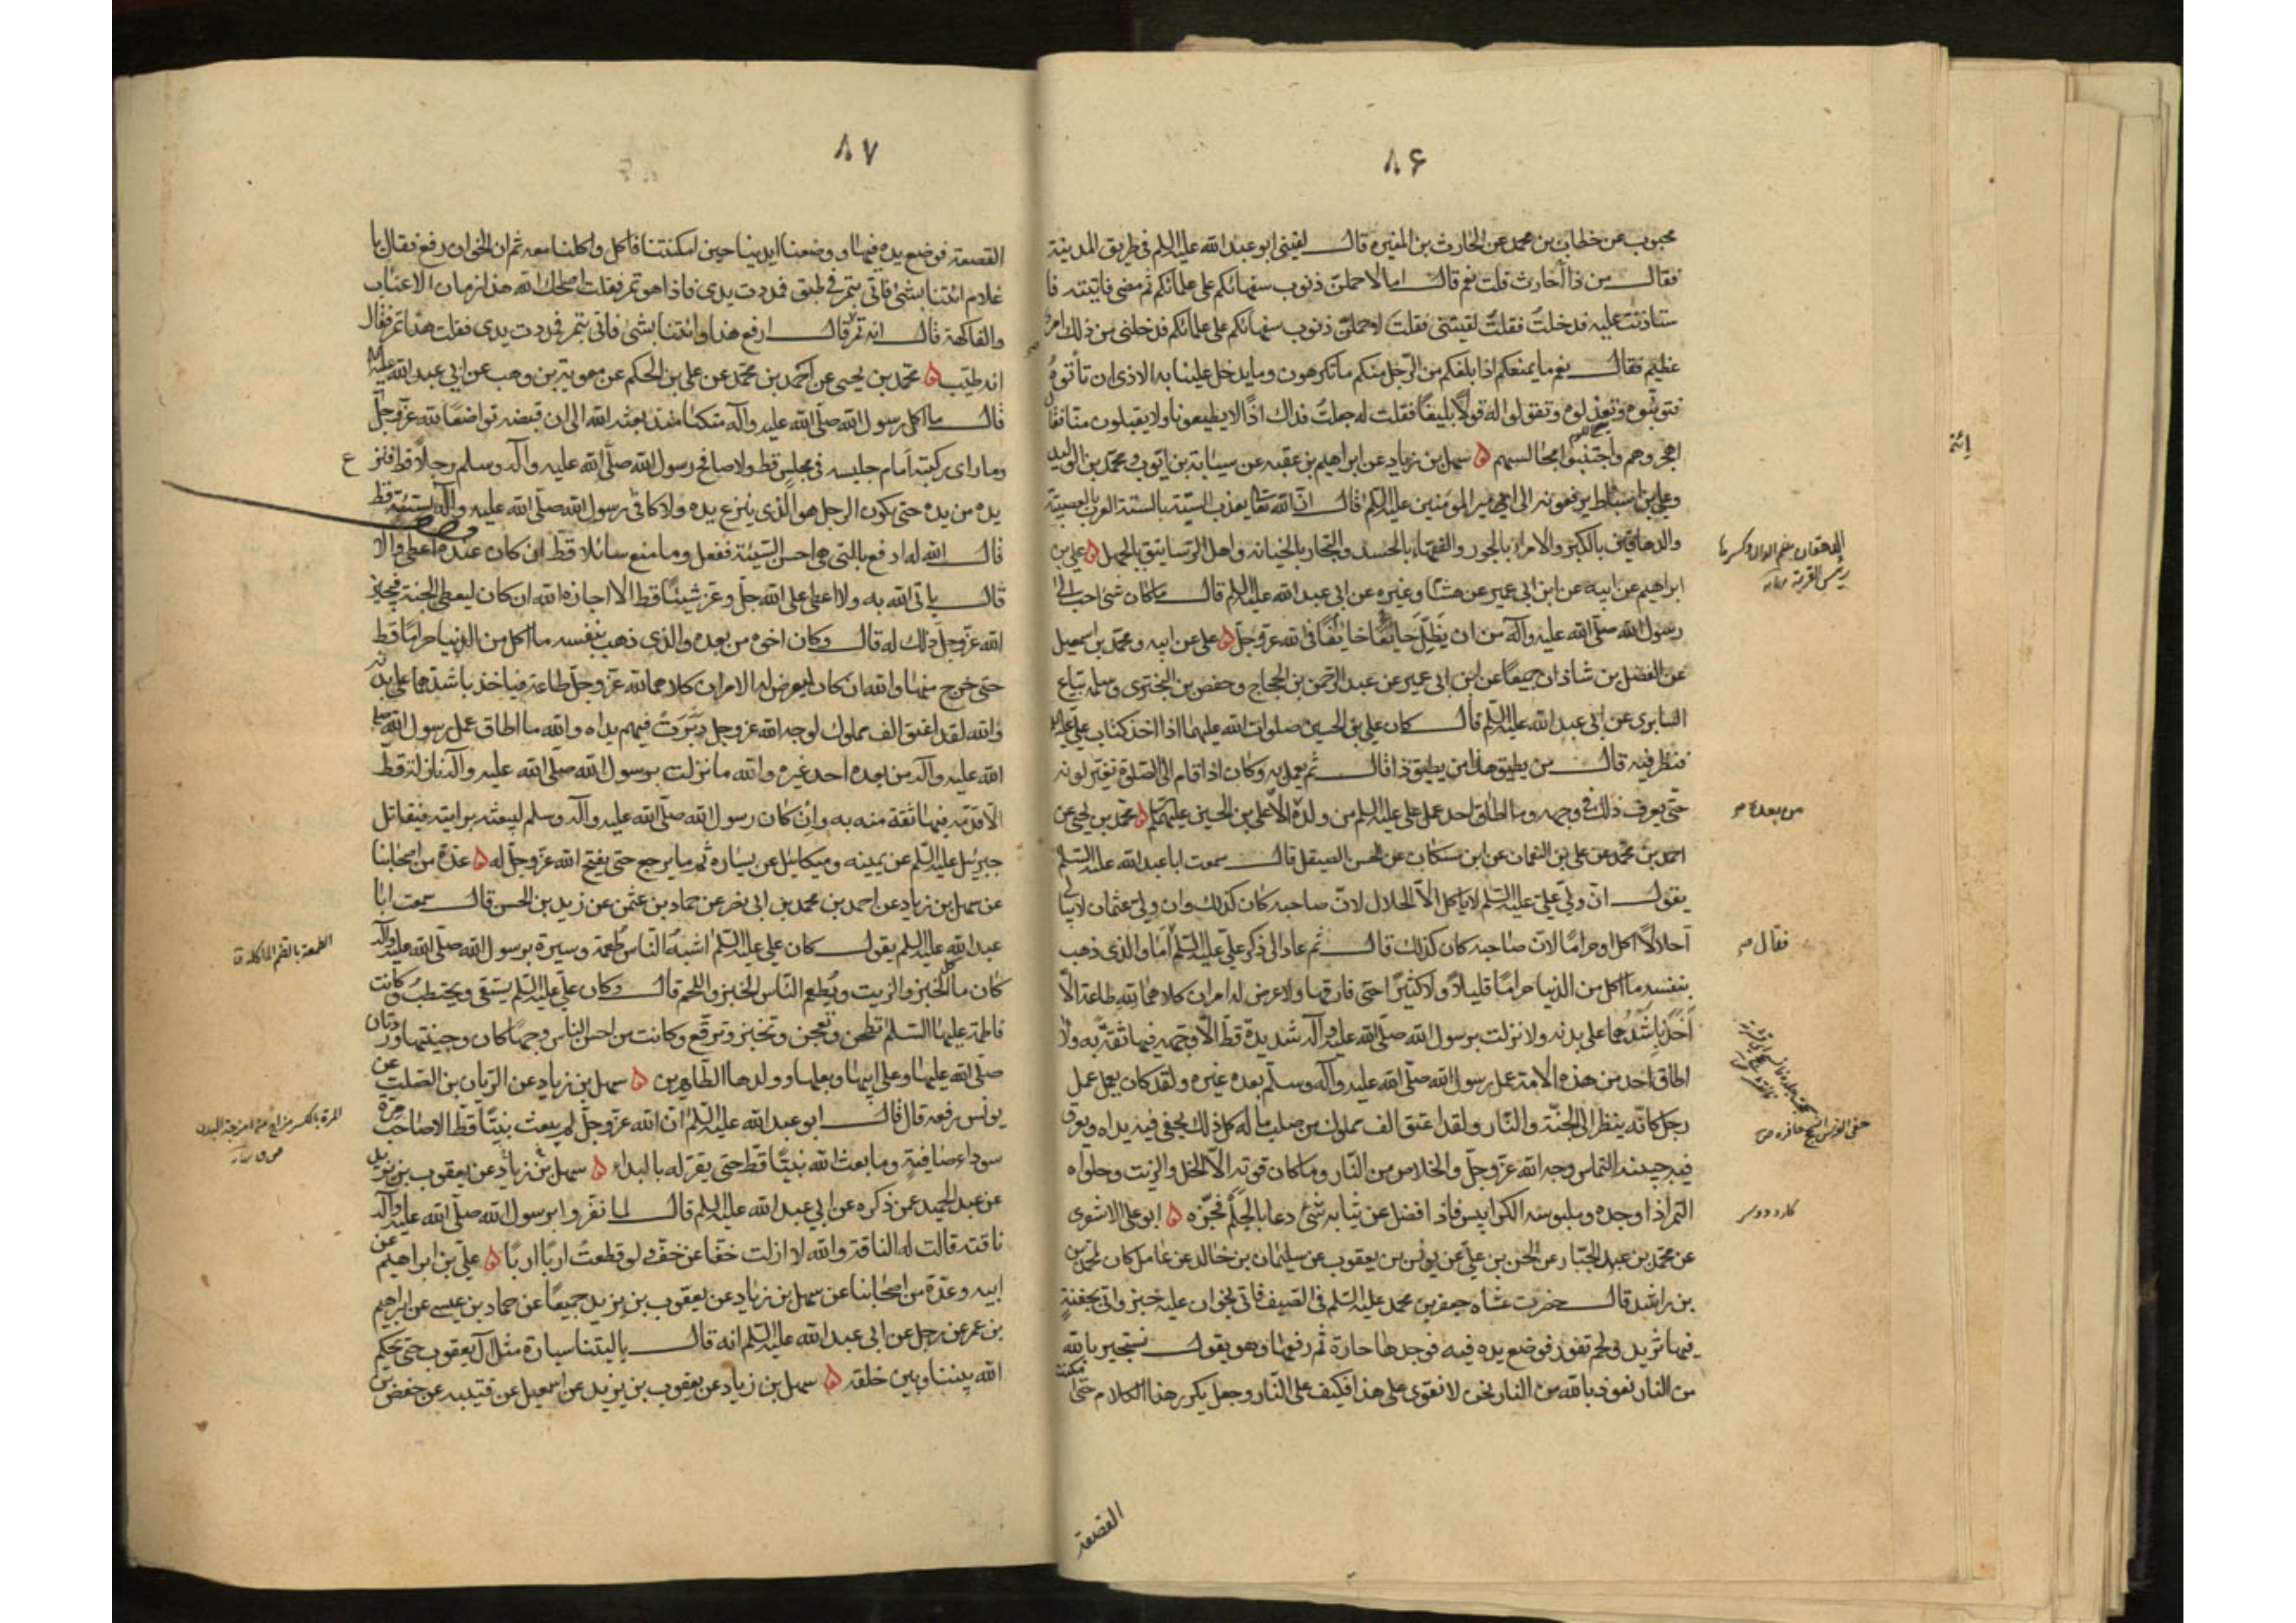 ٨۶
محبوب عن خطاب بن محمد عن الحارث بن المغيره قال لقينى ابو عبد الله عليه السلم فى طريق المدينة
فقال من ذا أحارث قلت نعم قال اما لاحملن ذنوب سفهائكم على علمائكم ثم مضى فاتيته فا
ستاذنت عليه فدخلت فقلت لقيتنى فقلت لاحملن ذنوب سفهائكم على علمائكم فدخلنى من ذلك امر
عظيم فقال نعم ما يمنعكم اذا بلغكم من الرجل منكم ما تكرهون وما يدخل علينا به الاذى ان تأتوه
فتونبوه وتعذلوه وتقولوا له قولاً بليغاً فقلت له جعلت فداك اذاً لا يطيعونا ولا يقبلون منا فقال
اهجروهم واجتنبوا مجالسهم ۵ سهل بن زياد عن ابراهيم بن عقبه عن سيابة بن ايوب ومحمد بن الوليد
وعلى بن اسباط يرفعونه الى امير المؤمنين عليه السلم قال ان الله تعا يعذب الستة بالستة العرب بالعصبية
والدهاقين بالكبر والامراء بالجور والفقهاء بالحسد والتجار بالخيانة واهل الرساتيق بالجهل ۵ على بن
ابراهيم عن ابيه عن ابن ابى عمير عن هشام وغيره عن ابى عبد الله عليه السلم قال ما كان شئ احب الى
رسول الله صلى الله عليه وآله من ان يظل جايعاً خايفاً فى الله عز وجل ۵ على عن ابيه ومحمد بن اسمعيل
عن الفضل بن شاذان جميعاً عن ابن ابى عمير عن عبد الرحمن بن الحجاج وحفص بن البخترى وسلمه بياع
السابرى عن ابى عبد الله عليه السلم قال كان على بن الحسين صلوات الله عليهما اذا اخذ كتاب على عليه السلم
فنظر فيه قال من يطيق هذا من يطيق ذا قال ثم يعمل به وكان اذا قام الى الصلوة تغير لونه
حتى يعرف ذلك فى وجهه وما اطاق احد عمل على عليه السلم من ولده الا على بن الحسين عليهما السلم ۵ محمد بن يحيى عن
احمد بن محمد عن على بن النعمان عن ابن مسكان عن الحسن الصيقل قال سمعت ابا عبد الله عليه السلم
يقول ان ولى على عليه السلم لا ياكل الا الحلال لان صاحبه كان كذلك وان ولى عثمان لا يبالى
أحلالاً اكل او حراماً لان صاحبه كان كذلك قال ثم عاد الى ذكر على عليه السلم أما والذى ذهب
بنفسه ما اكل من الدنيا حراماً قليلاً ولا كثيراً حتى فارقها ولا عرض له امران كلاهما لله طاعة الا
أخذ باشدهما على بدنه ولا نزلت برسول الله صلى الله عليه وآله شديدة قط الا وجهه فيها ثقة به ولا
اطاق احد من هذه الامة عمل رسول الله صلى الله عليه وآله وسلم بعده غيره ولقد كان يعمل عمل
رجل كانه ينظر الى الجنة والنار ولقد اعتق الف مملوك من صلب ماله كل ذلك يحفى فيه يداه ويعرق
فيه جبينه التماس وجه الله عز وجل والخلاص من النار وما كان قوته الا الخل والزيت وحلواه
التمر اذا وجده وملبوسه الكرابيس فاذا فضل عن ثيابه شئ دعا بالجلم فجزه ۵ ابو على الاشعرى
عن محمد بن عبد الجبار عن الحسن بن على عن يونس بن يعقوب عن سليمان بن خالد عن عامل كان لمحمد بن
بن راشد قال حضرت عشاء جعفر بن محمد عليه السلم فى الصيف فاتى بخوان عليه خبز واتى بجفنة
فيها ثريد ولحم تفور فوضع يده فيه فوجدها حارة ثم رفعها وهو يقول نستجير بالله
من النار نعوذ بالله من النار نحن لا نقوى على هذا فكيف على النار وجعل يكرر هذا الكلام حتى امكنت
القصعة
من بعده ص
فقال ص
٨٧
القصعة فوضع يده فيها ووضعنا ايدينا حين امكنتنا فاكل واكلنا معه ثم ان الخوان رفع فقال يا
غلام ائتنا بشئ فاتى بتمر فى طبق فمددت يدى فاذا هو تمر فقلت اصلحك الله هذا زمان الاعناب
والفاكهة قال انه تمر قال ارفع هذا وائتنا بشئ فاتى بتمر فمددت يدى فقلت هذا تمر فقال
انه طيب ۵ محمد بن يحيى عن احمد بن محمد عن على بن الحكم عن معوية بن وهب عن ابى عبد الله عليه السلم
قال ما اكل رسول الله صلى الله عليه وآله متكئاً منذ بعثه الله الى ان قبضه تواضعاً لله عز وجل
وما راى ركبتيه أمام جليسه فى مجلس قط ولا صافح رسول الله صلى الله عليه وآله وسلم رجلاً قط فنزع
يده من يده حتى يكون الرجل هو الذى ينزع يده ولا كافى رسول الله صلى الله عليه وآله بسيئة قط
قال الله له ادفع بالتى هى احسن السيئة ففعل وما منع سائلا قط ان كان عنده اعطى والا
قال ياتى الله به ولا اعطى على الله جل وعز شيئاً قط الا اجازه الله ان كان ليعطى الجنة فيجيز
الله عز وجل ذلك له قال وكان اخوه من بعده والذى ذهب بنفسه ما اكل من الدنيا حراماً قط
حتى خرج منها والله ان كان ليعرض له الامران كلاهما لله عز وجل طاعة فياخذ باشدهما على بدنه
والله لقد اعتق الف مملوك لوجه الله عز وجل دبرت فيهم يداه والله ما اطاق عمل رسول الله صلى
الله عليه وآله من بعده احد غيره والله ما نزلت برسول الله صلى الله عليه وآله نازلة قط
الا قدمه فيها ثقة منه به وان كان رسول الله صلى الله عليه وآله وسلم ليبعثه برايته فيقاتل
جبرئيل عليه السلم عن يمينه وميكائيل عن يساره ثم ما يرجع حتى يفتح الله عز وجل له ۵ عدة من اصحابنا
عن سهل بن زياد عن احمد بن محمد بن ابى نصر عن حماد بن عثمن عن زيد بن الحسن قال سمعت ابا
عبد الله عليه السلم يقول كان على عليه السلم اشبه الناس طعمة وسيرة برسول الله صلى الله عليه وآله
كان ياكل الخبز والزيت ويطعم الناس الخبز واللحم قال وكان على عليه السلم يستقى ويحتطب وكانت
فاطمة عليها السلم تطحن وتعجن وتخبز وترقع وكانت من احسن الناس وجهاً كان وجنتيها وردتان
صلى الله عليها وعلى ابيها وبعلها وولدها الطاهرين ۵ سهل بن زياد عن الريان بن الصلت عن
يونس رفعه قال قال ابو عبد الله عليه السلم ان الله عز وجل لم يبعث نبياً قط الا صاحب مرة
سوداء صافية وما بعث الله نبياً قط حتى يقر له بالبداء ۵ سهل بن زياد عن يعقوب بن يزيد
عن عبد الحميد عمن ذكره عن ابى عبد الله عليه السلم قال لما نفروا برسول الله صلى الله عليه وآله
ناقته قالت له الناقة والله لا ازلت خفاً عن خف ولو قطعت ارباً ارباً ۵ على بن ابراهيم عن
ابيه وعدة من اصحابنا عن سهل بن زياد عن يعقوب بن يزيد جميعاً عن حماد بن عيسى عن ابراهيم
بن عمر عن رجل عن ابى عبد الله عليه السلم انه قال يا ليتنا سيارة مثل آل يعقوب حتى يحكم
الله بيننا وبين خلقه ۵ سهل بن زياد عن يعقوب بن يزيد عن اسمعيل عن قتيبه عن حفص بن
الطعمة بالضم الماكلة ق